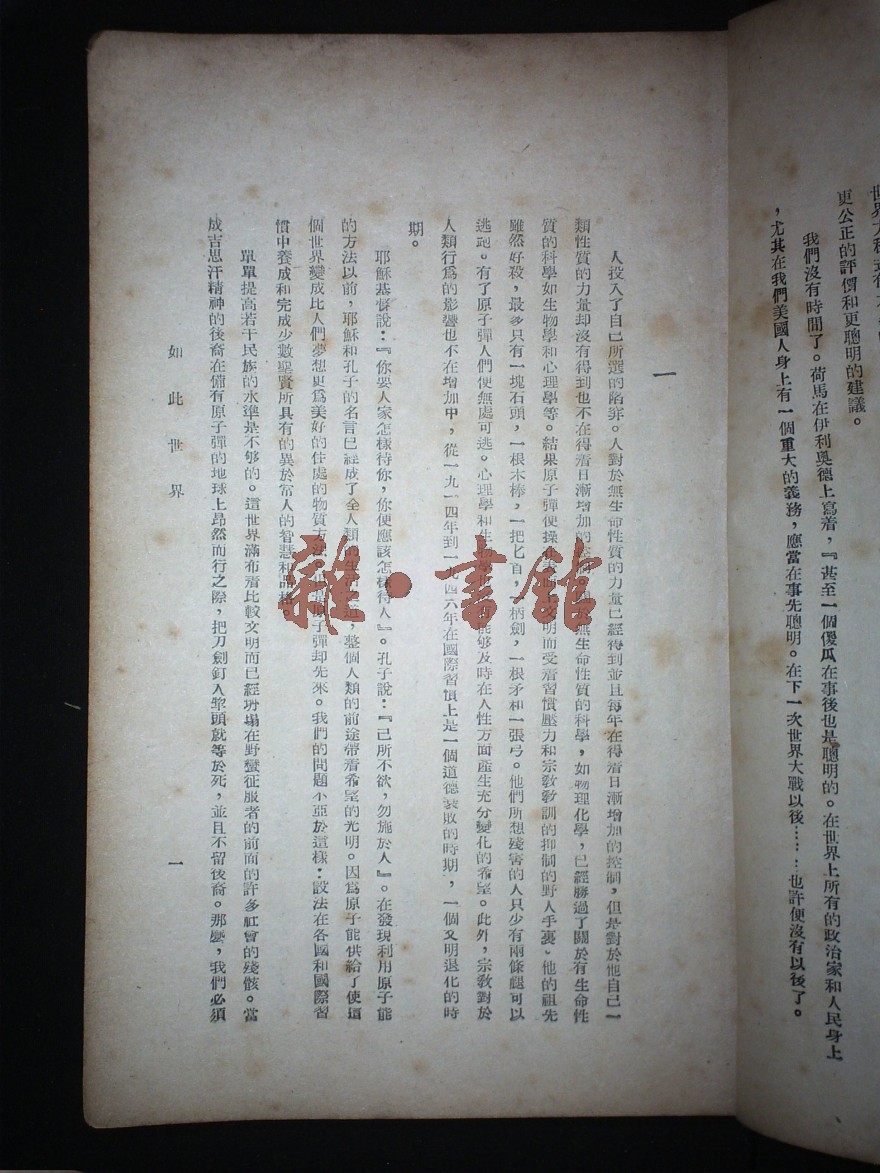 更公正的評價和更聰明的建議。
我們沒有時間了。荷馬在伊利奧德上寫着，『甚至一個傻瓜在事後也是聰明的。在世界上所有的政治家和人民身上
，尤其在我們美國人身上有一個重大的義務，應當在事先聰明。在下一次世界大戰以後……也許便沒有以後了。
一
人投入了自己所選的陷穽。人對於無生命性質的力量已經得到並且每年在得着日漸增加的控制，但是對於他自己一
類性質的力量却沒有得到也不在得着日漸增加的控制。關於無生命性質的科學，如物理化學，已經勝過了關於有生命性
質的科學如生物學和心理學等。結果原子彈便操在文明而受着習慣壓力和宗敎敎訓的抑制的野人手裏。他的祖先
雖然好殺，最多只有一塊石頭，一根木棒，一把匕首，一柄劍，一根矛和一張弓。他們所想殘害的人只少有兩條腿可以
逃跑。有了原子彈人們便無處可逃。心理學和生能够及時在人性方面產生充分變化的希望。此外，宗敎對於
人類行爲的影響也不在增加中，從一九一四年到一九四六年在國際習慣上是一個道德衰敗的時期，一個文明退化的時
期。
耶穌基督說：『你要人家怎樣待你，你便應該怎樣待人』。孔子說：『己所不欲，勿施於人』。在發現利用原子能
的方法以前，耶穌和孔子的名言已經成了全人類的，整個人類的前途帶着希望的光明。因爲原子能供給了使這
個世界變成比人們夢想更爲美好的住處的物質方法原子彈却先來。我們的問題不亞於這樣：設法在各國和國際習
慣中養成和完成少數聖賢所具有的異於常人的智慧和品格。
單單提高若干民族的水準是不够的。這世界滿布着比較文明而已經坍塌在野蠻征服者的前面的許多社會的殘骸。當
成吉思汗精神的後裔在備有原子彈的地球上昂然而行之際，把刀劍釘入犂頭就等於死，並且不留後裔。那麽，我們必須
如此世界
一
雜·書館